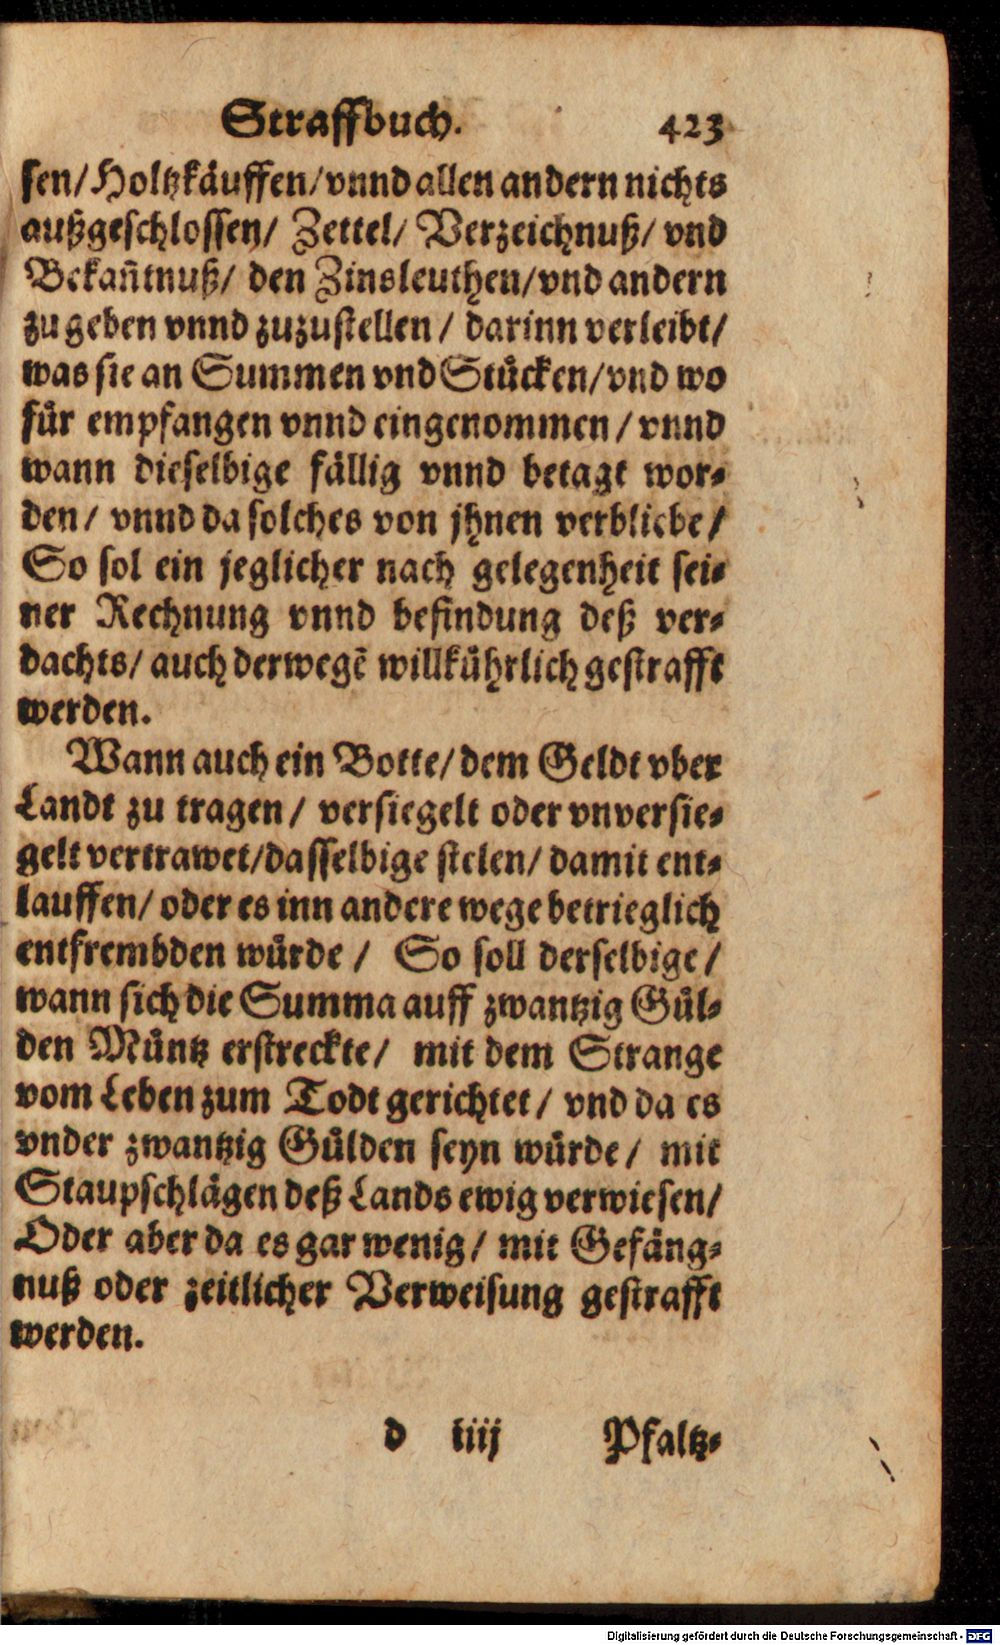 Straffbuch. 423
sen/Holtzkäuffen/vnnd allen andern nichts
außgeschlossen/ Zettel/ Verzeichnuß/ vnd
Bekañtnuß/ den Zinsleuthen/vnd andern
zu geben vnnd zuzustellen / darinn verleibt/
was sie an Summen vnd Stücken/vnd wo
für empfangen vnnd eingenommen / vnnd
wann dieselbige fällig vnnd betagt wor-
den/ vnnd da solches von jhnen verbliebe/
So sol ein jeglicher nach gelegenheit sei-
ner Rechnung vnnd befindung deß ver-
dachts/ auch derwegẽ willkührlich gestrafft
werden.
Wann auch ein Botte/dem Geldt vber
Landt zu tragen/ versiegelt oder vnversie-
gelt vertrawet/dasselbige stelen/ damit ent-
lauffen/ oder es inn andere wege betrieglich
entfrembden würde / So soll derselbige/
wann sich die Summa auff zwantzig Gül-
den Müntz erstreckte/ mit dem Strange
vom Leben zum Todt gerichtet/ vnd da es
vnder zwantzig Gülden seyn würde/ mit
Staupschlägen deß Lands ewig verwiesen/
Oder aber da es gar wenig/ mit Gefäng-
nuß oder zeitlicher Verweisung gestrafft
werden.
d iiij Pfaltz-
Digitalisierung gefördert durch die Deutsche Forschungsgemeinschaft - DFG